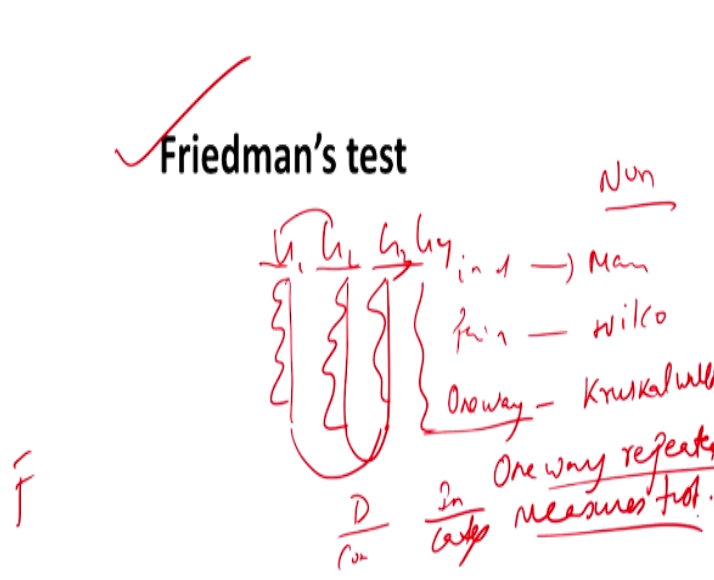 Friedman's test
Non
G₁ G₂ G₃ G4
ind → Man
Pair – Wilco
Oneway – Kruskal
One way repeated
measures
D In
Con
F